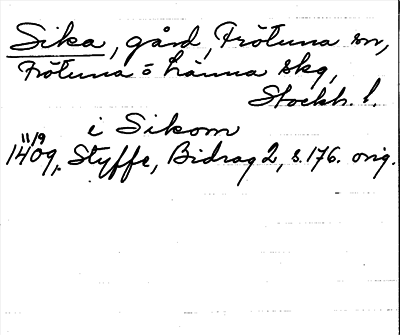 Sika, gård, Frötuna sn,
Frötuna o Länna skg,
Stockh. l.
i Sikom
11/9
1409, Styffe, Bidrag 2, s. 176. orig.